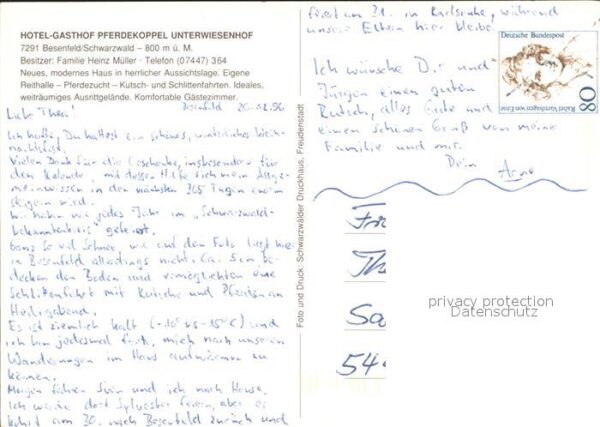 HOTEL-GASTHOF PFERDEKOPPEL UNTERWIESENHOF
7291 Besenfeld/Schwarzwald – 800 m ü. M.
Besitzer: Familie Heinz Müller · Telefon (07447) 364
Neues, modernes Haus in herrlicher Aussichtslage. Eigene
Reithalle – Pferdezucht – Kutsch- und Schlittenfahrten. Ideales,
weiträumiges Ausrittgelände. Komfortable Gästezimmer.
Besenfeld 26.12.96
Liebe Thea!
Ich hoffe, Du hattest ein schönes, winterliches Weih-
nachtsfest.
Vielen Dank für die Geschenke, insbesondere für
den Kalender, mit dessen Hilfe sich mein Allge-
meinwissen in den nächsten 365 Tagen enorm
steigern wird.
Wir haben wie jedes Jahr im „Schwarzwald-
bekanntenkreis" gefeiert.
Ganz so viel Schnee, wie auf dem Foto liegt hier
in Besenfeld allerdings nicht. Ca. 5 cm be-
decken den Boden und ermöglichten eine
Schlittenfahrt mit Kutsche und Pferden an
Heiligabend.
Es ist ziemlich kalt (-10° bis -15°C) und
ich bin jedesmal froh, mich nach unseren
Wanderungen im Haus aufwärmen zu
können.
Morgen fahren und ich nach Hause.
Ich werde dort Sylvester feiern, aber
am 30. nach Besenfeld zurück und
Foto und Druck: Schwarzwälder Druckhaus, Freudenstadt
feiert am 31. in Karlsruhe, während
unsere Eltern hier bleiben.
Ich wünsche Dir und
Jürgen einen guten
Rutsch, alles Gute und
einen schönen Gruß von meine
Familie und mir.
Dein Arne
Deutsche Bundespost
Rahel Varnhagen von Ense
80
54
privacy protection
Datenschutz